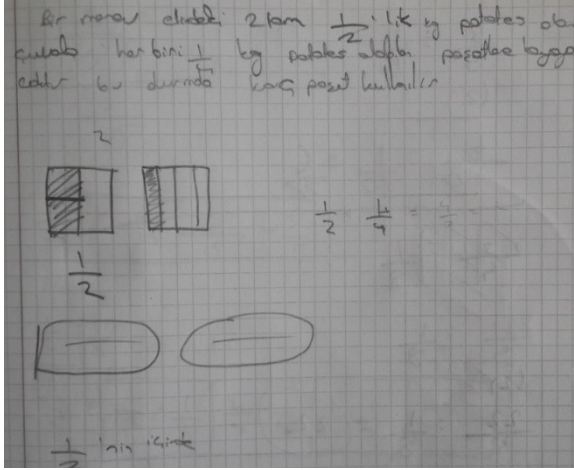 Bir manav elindeki 2 tam 1/2 'lik kg patates olan
çuvalı her biri 1/4 kg patates alabilen poşetlere
bu durumda kaç poşet kullanılır
2
1/2 1/4 =
1/2
1/2 'nin içinde